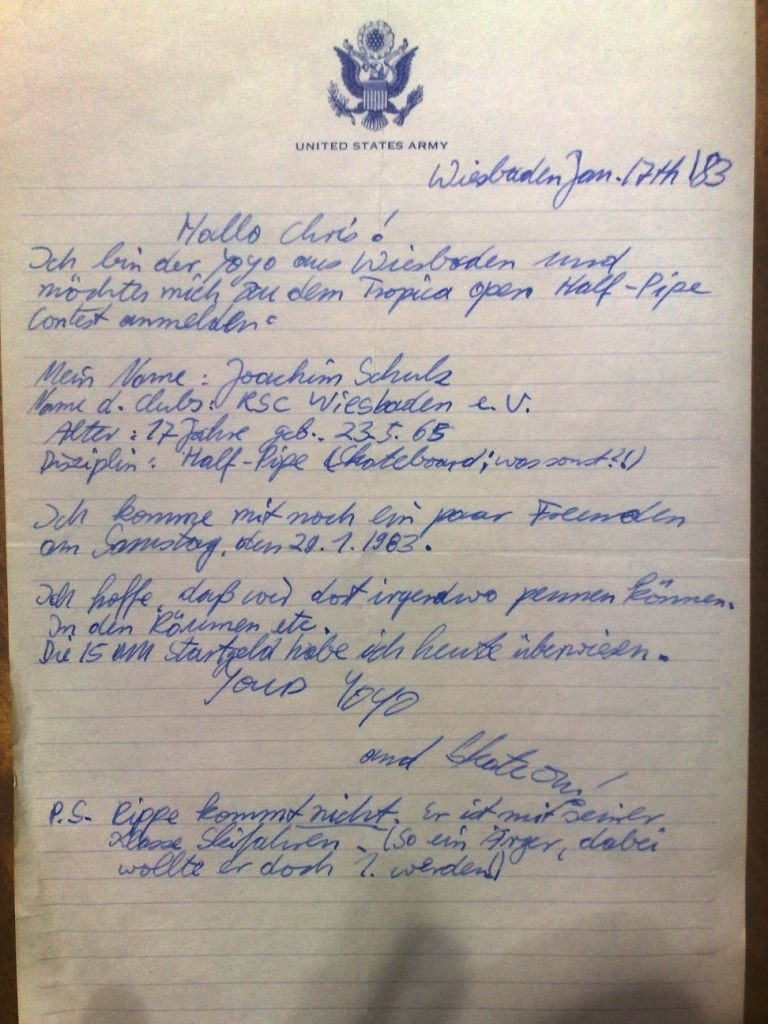 UNITED STATES ARMY
Wiesbaden Jan. 17th '83
Hallo Chris!
Ich bin der Yoyo aus Wiesbaden und
möchte mich zu dem Tropica open Half-Pipe
Contest anmelden:
Mein Name: Joachim Schulz
Name d. Clubs: RSC Wiesbaden e.V.
Alter: 17 Jahre geb. 23.5.65
Disziplin: Half-Pipe (Skateboard; was sonst?!)
Ich komme mit noch ein paar Freunden
am Samstag, den 29.1.1983.
Ich hoffe, daß wir dort irgendwo pennen können.
In den Räumen etc.
Die 15 DM Startgeld habe ich heute überwiesen.
Yours Yoyo
and Skate on!
P.S. Rippe kommt nicht. Er ist mit seiner
Klasse Skifahren. (So ein Ärger, dabei
wollte er doch 1. werden!)